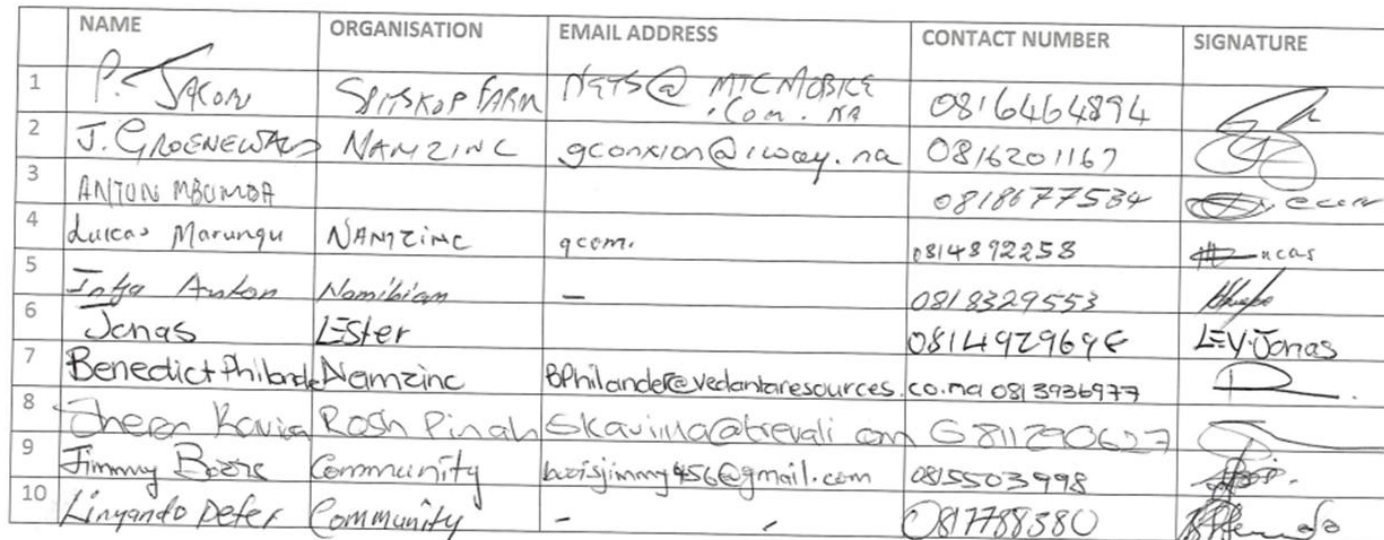 NAME ORGANISATION EMAIL ADDRESS CONTACT NUMBER SIGNATURE
1 P. SPITSKOP FARM @ MTCMOBILE .Com.NA 0816464894
2 J. GROENEWALD NAMZINC gconxion@iway.na 0816201167
3 ANTON MBUMBA 0818677534
4 Lukas Marungu NAMZINC gcom. 0814892258
5 Anton Namibian – 0818329553
6 Jonas Lester 0814929698 L.E.V.Jonas
7 Benedict Philander Namzinc BPhilander@vedantaresources.co.na 0813936977
8 Rosh Pinah
9 Jimmy Community boisjimmy456@gmail.com 0815503998
10 Linyando Peter Community – 0817788380